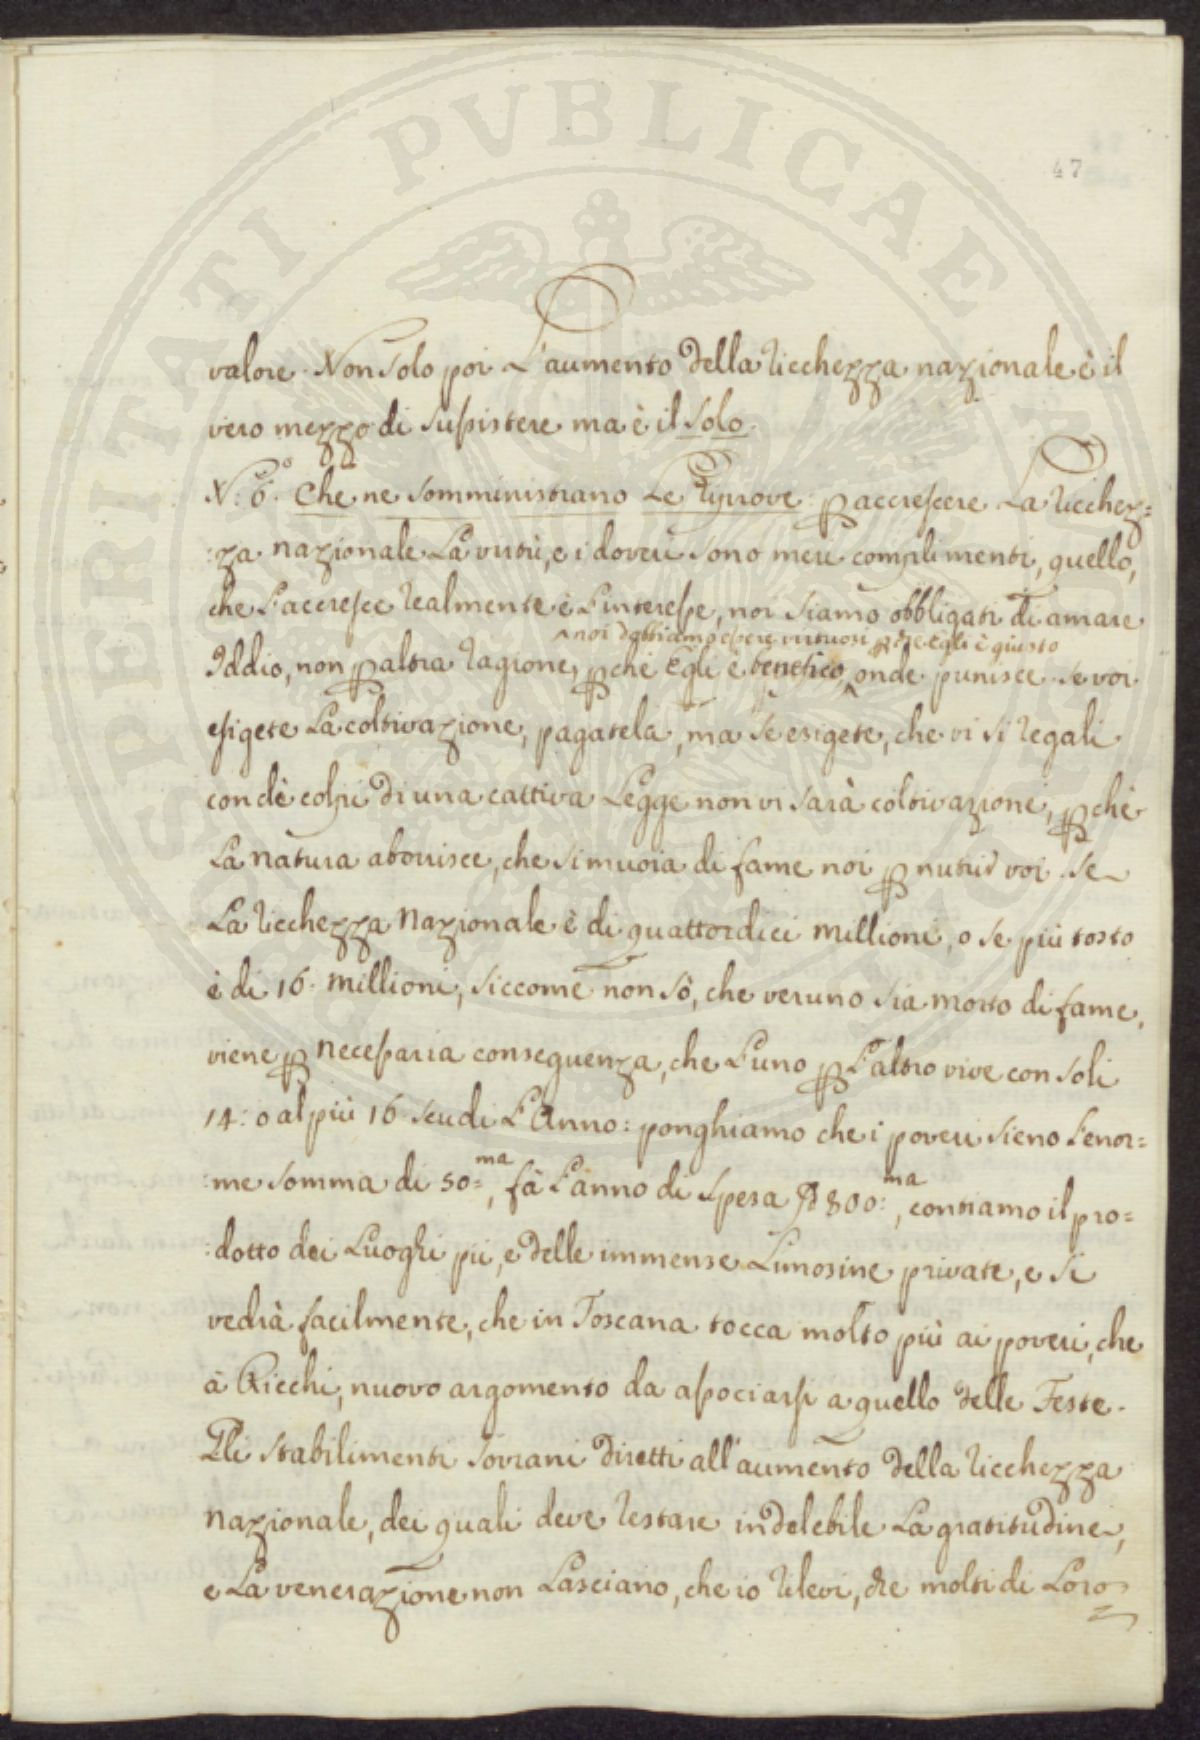 47
valore. Non solo poi L'aumento della ricchezza nazionale è il
vero mezzo di sussistere ma è il solo.
N.º 6.º Che ne somministrano Le riprove p accrescere La ricchez=
:za nazionale La virtù, e i doveri sono meri complimenti, quello,
che L'accresce realmente è L'interesse, noi siamo obbligati di amare
^ noi dobbiamo essere virtuosi pche Egli è giusto
Iddio, non p altra ragione, pchè Egli è benefico, ^ onde punisce. Se voi
esigete La coltivazione, pagatela, ma se esigete, che vi si regali
con dè colpi di una cattiva Legge non vi sarà coltivazione, pchè
La natura aborrisce, che si muoia di fame noi p nutrir voi. Se
La ricchezza Nazionale è di quattordici millioni, o se più tosto
è di 16. millioni, siccome non sò, che veruno sia morto di fame,
viene p necessaria conseguenza, che L'uno p L'altro vive con soli
14: o al più 16 scudi L'Anno: ponghiamo che i poveri sieno L'enor=
:me somma di 50=ma, fà L'anno di spesa 800:ma, contiamo il pro=
:dotto dei Luoghi pii, e delle immense Limosine private, e si
vedrà facilmente, che in Toscana tocca molto più ai poveri, che
à Ricchi, nuovo argomento da associarsi a quello delle Feste.
Gli stabilimenti sovrani diretti all'aumento della ricchezza
nazionale, dei quali deve restare indelebile La gratitudine,
e La venerazione non Lasciano, che io rilevi, che molti di Loro
PERITATI PVBLICAE